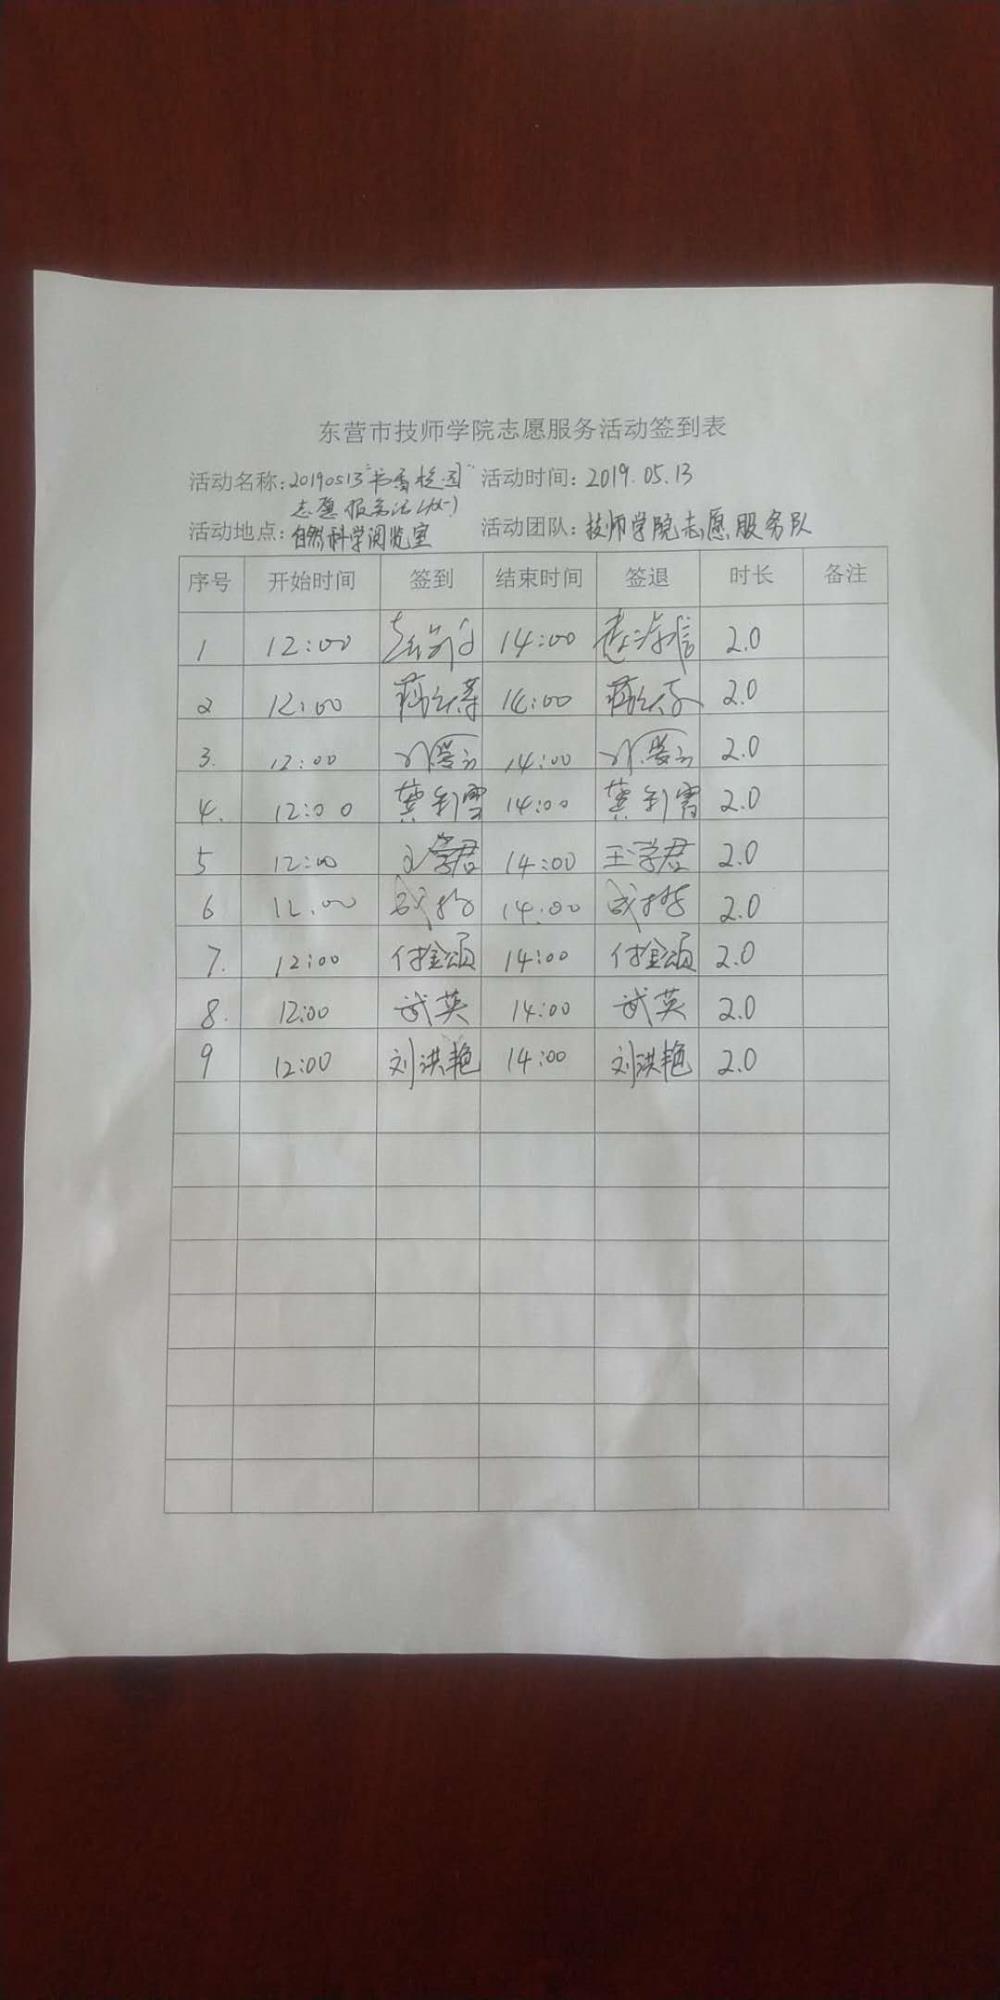 东营市技师学院志愿服务活动签到表
活动名称：20190513"书香校园" 活动时间：2019.05.13
志愿服务活动(一)
活动地点：自然科学阅览室 活动团队：技师学院志愿服务队
序号 开始时间 签到 结束时间 签退 时长 备注
1 12:00 14:00 2.0
2 12:00 14:00 2.0
3. 12:00 14:00 2.0
4. 12:00 龚利雪 14:00 龚利雪 2.0
5 12:00 王学君 14:00 王学君 2.0
6 12:00 14:00 2.0
7. 12:00 付金颂 14:00 付金颂 2.0
8. 12:00 武英 14:00 武英 2.0
9 12:00 刘洪艳 14:00 刘洪艳 2.0